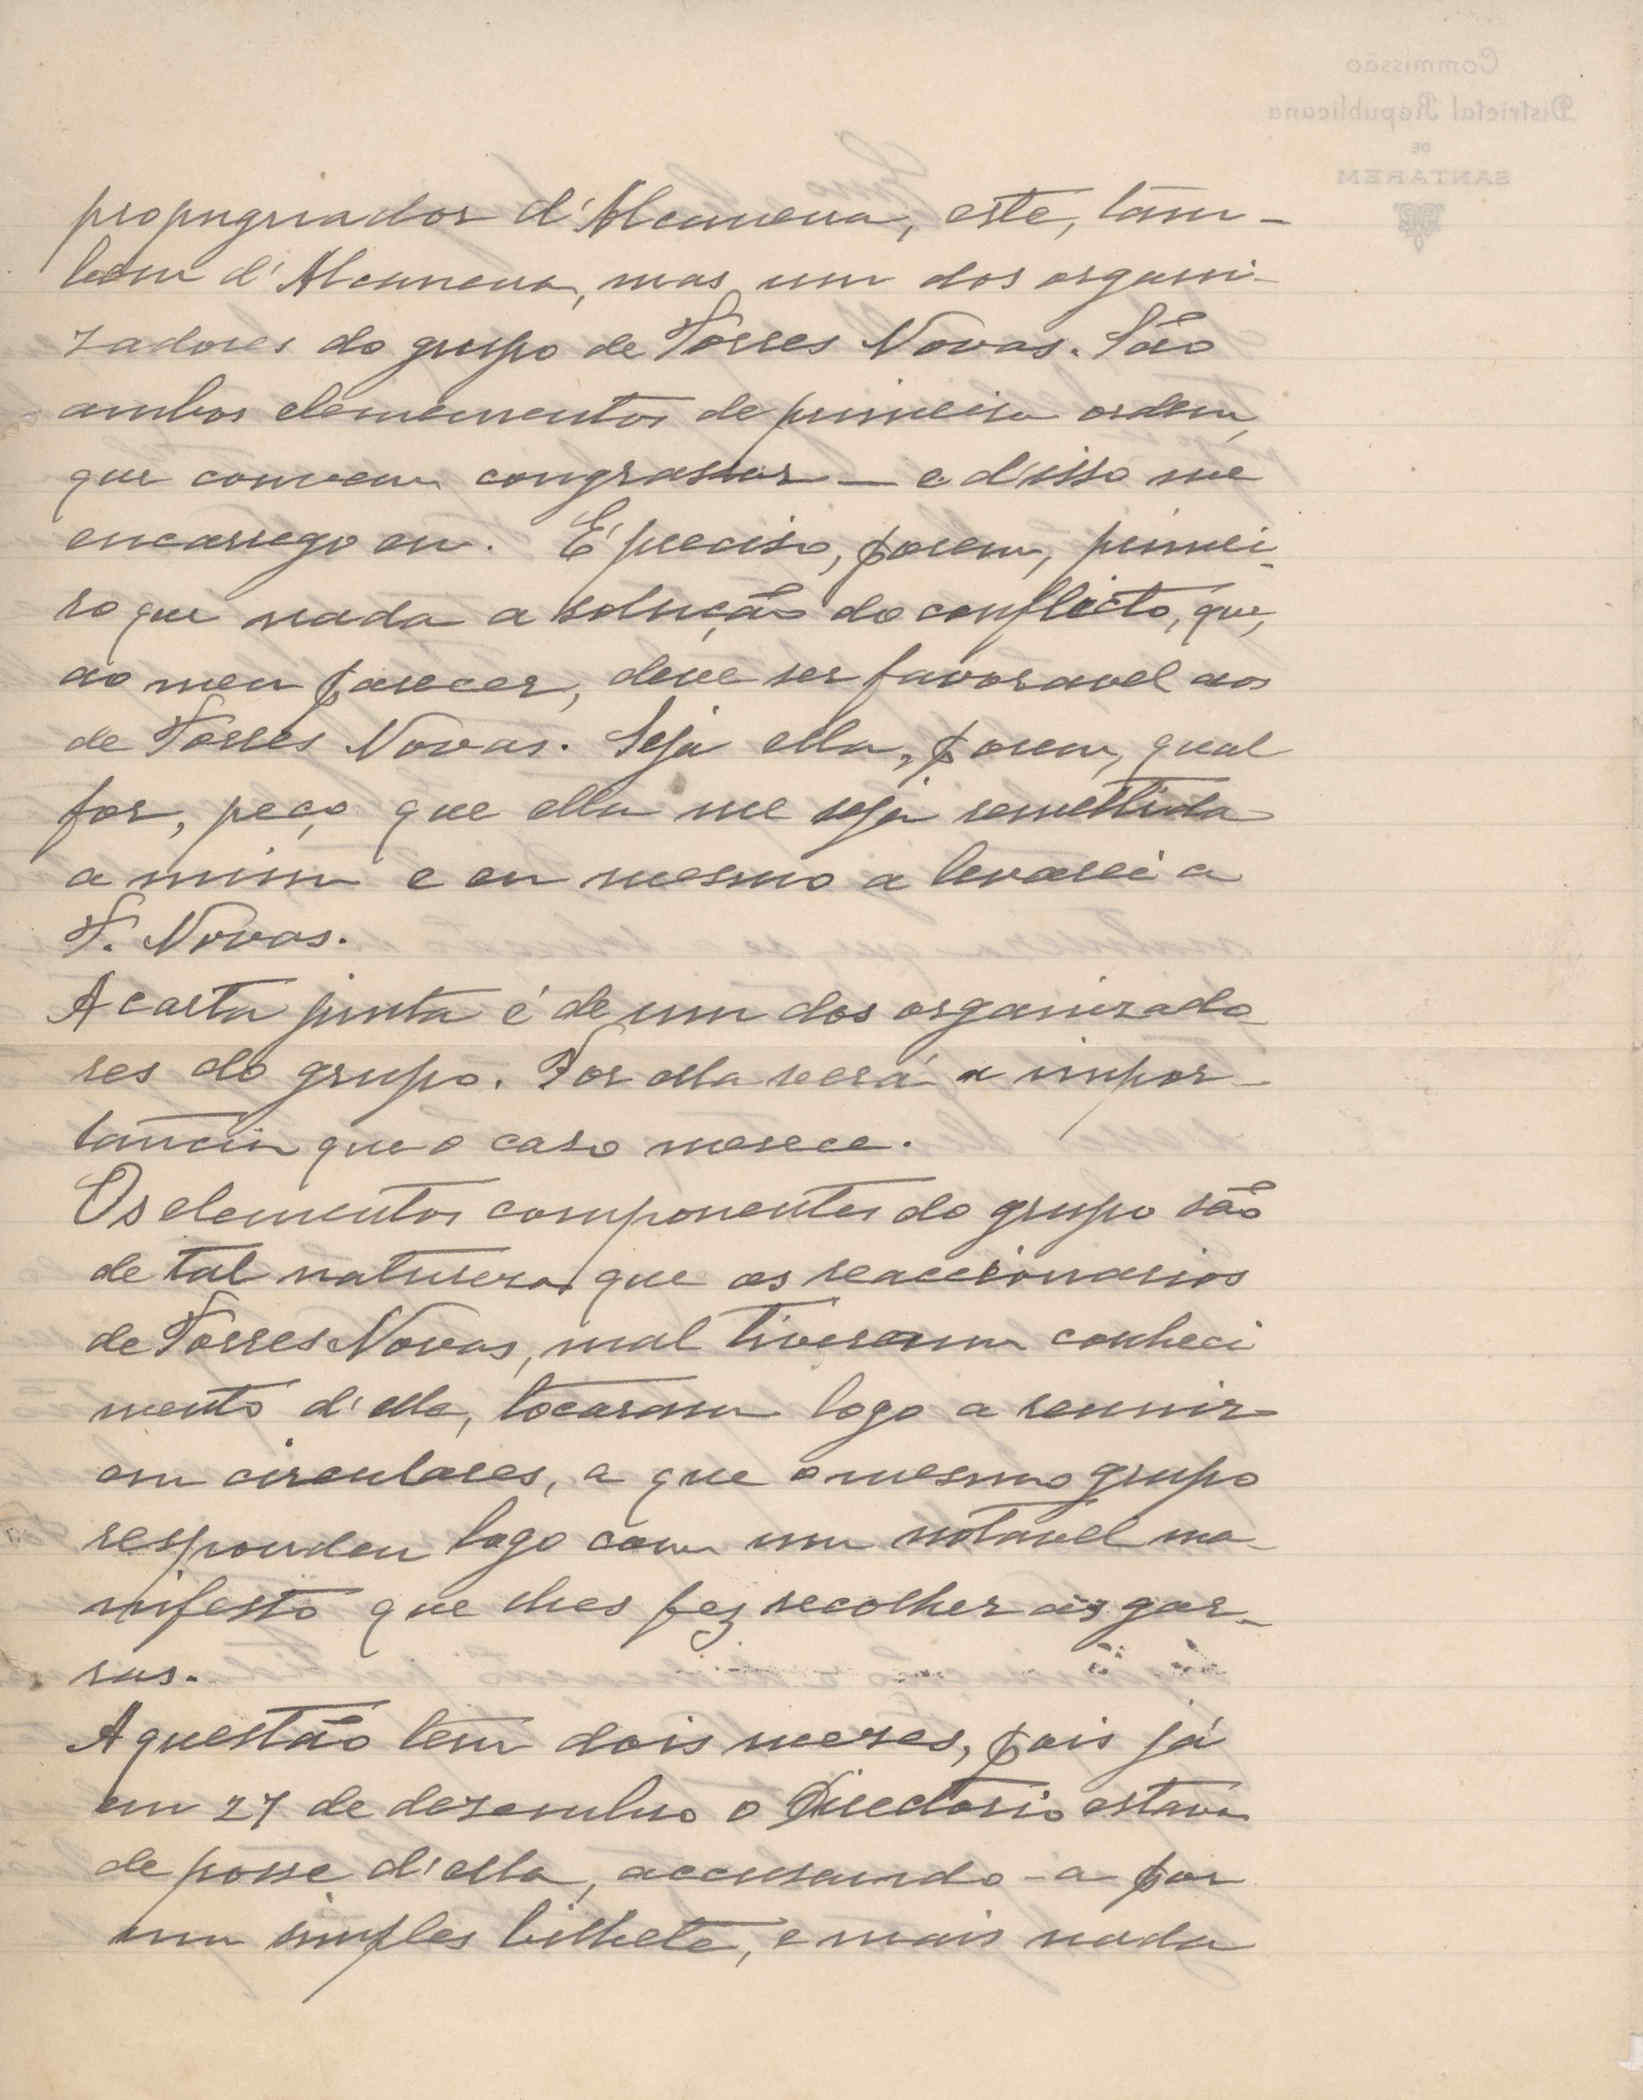 propugnador d'Alcanena, este, tam-
bem d'Alcanena, mas um dos organi-
zadores do grupo de Torres Novas. São
ambos elemementos de primeira ordem,
que convem congrassar — e d'isso me
encarrego eu. É preciso, porem, primei-
ro que nada a solução do conflicto, que,
ao meu parecer, deve ser favoravel aos
de Torres Novas. Seja ella, porem, qual
for, peço que ella me seja remettida
a mim e eu mesmo a levarei a
T. Novas.
A carta junta é de um dos organizado-
res do grupo. Por ella verá a impor-
tancia que o caso merece.
Os elementos componentes do grupo são
de tal natureza que os reaccionarios
de Torres Novas, mal tiveram conheci
mento d'elle, tocaram logo a reunir
em circulares, a que o mesmo grupo
respondeu logo com um notavel ma-
nifesto que lhes fez recolher as gar-
ras.
A questão tem dois mezes, pois já
em 27 de dezembro o Directorio estava
de posse d'ella, accusando-a por
um simples bilhete, e mais nada
Commissão
Districtal Republicana
DE
SANTAREM